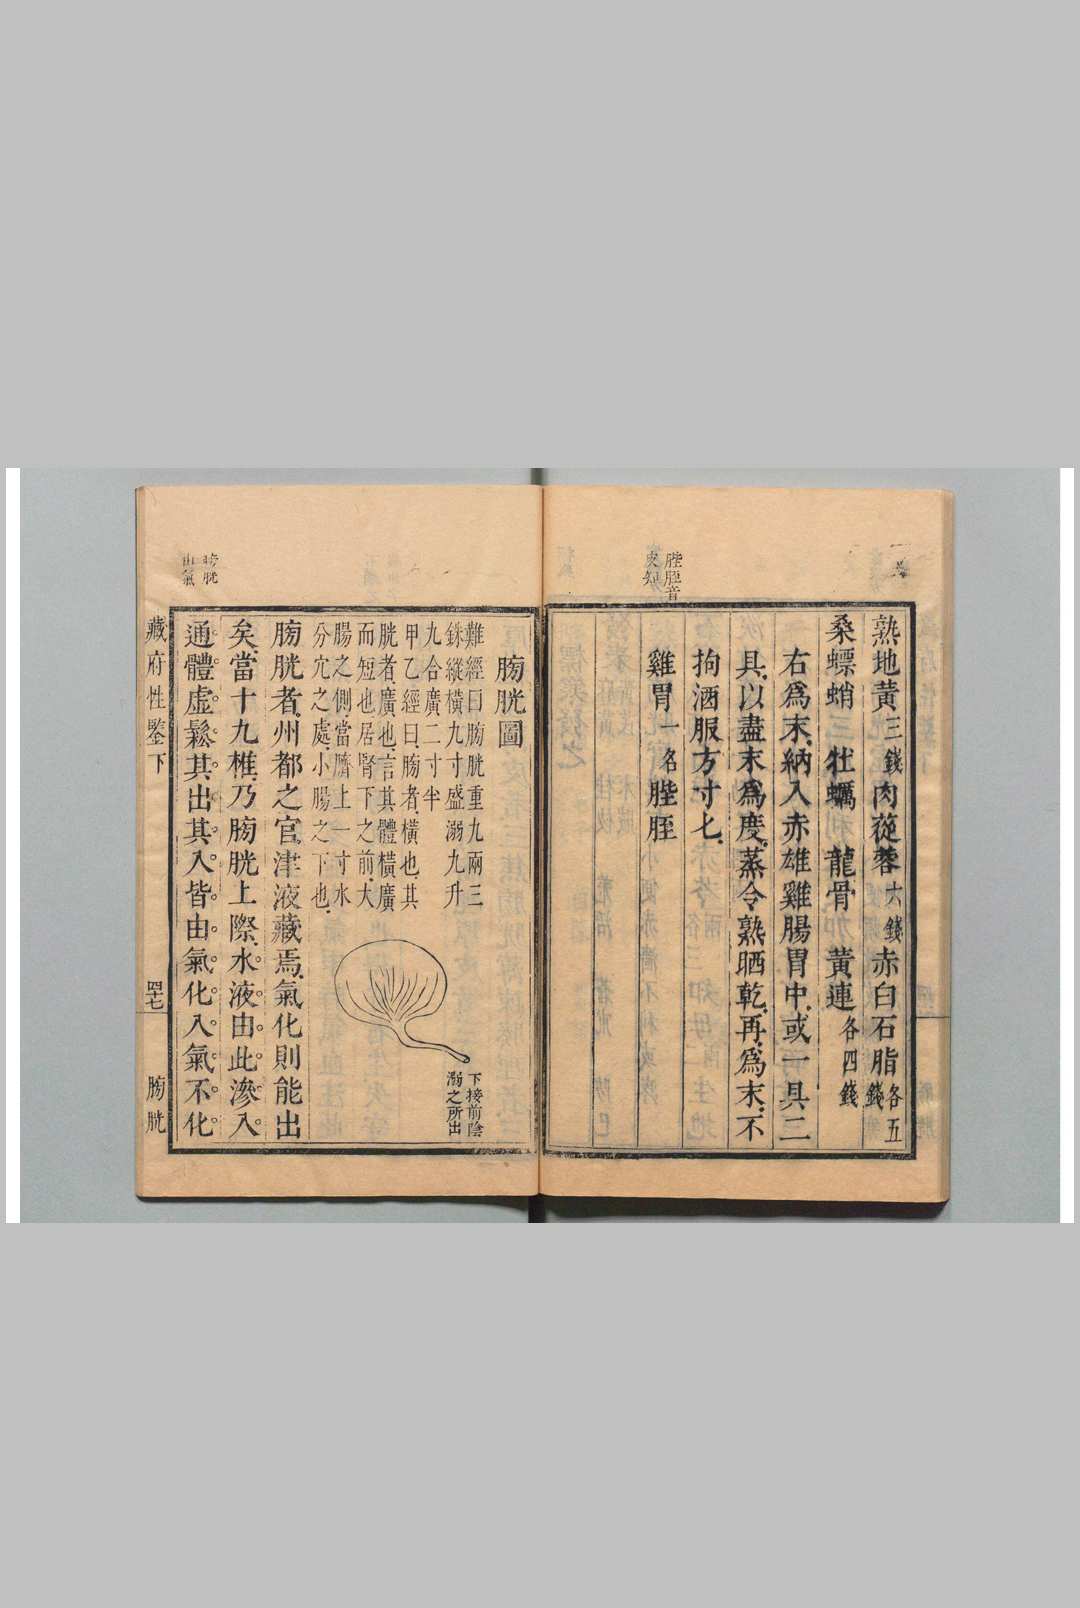 熟地黃三錢肉蓯蓉六錢赤白石脂各五錢
桑螵蛸三牡蠣 龍骨 黃連各四錢
右爲末納入赤雄雞腸胃中或一具二
具以盡末爲度蒸令熟晒乾再爲末不
拘酒服方寸七
雞胃一名䏶胵
䏶胵音
皮知
膀胱圖
難經曰膀胱重九兩三
銖縱橫九寸盛溺九升
九合廣二寸半
甲乙經曰膀者橫也其
胱者廣也言其體橫廣
而短也居腎下之前大
腸之側當臍上一寸水
分穴之處小腸之下也
下接前陰
溺之所出
膀胱者州都之官津液藏焉氣化則能出
矣當十九椎乃膀胱上際水液由此滲入
通體虛鬆其出其入皆由氣化入氣不化
膀胱
由氣
藏府性鑒下
四七
膀胱